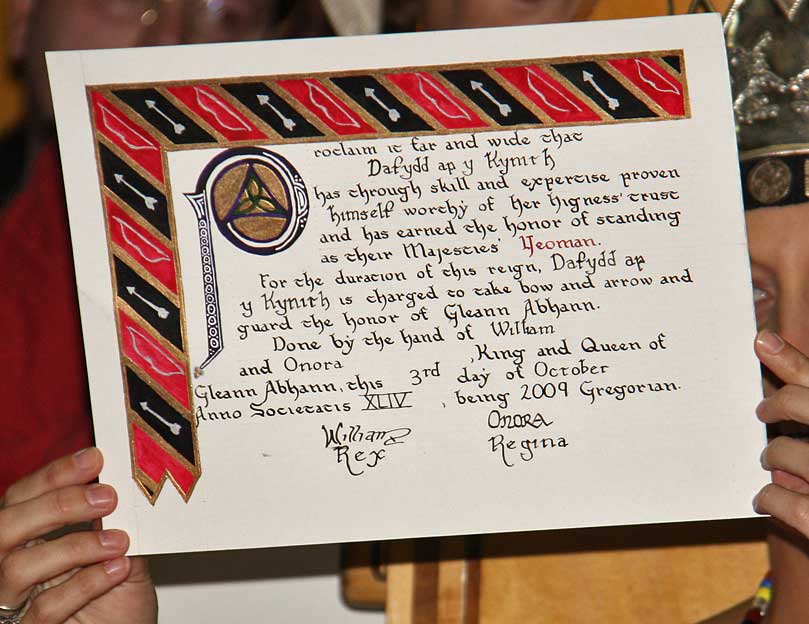 Proclaim it far and wide that
Dafydd ap y Kynith
has through skill and expertise proven
himself worthy of her higness' trust
and has earned the honor of standing
as their Majesties' Yeoman.
For the duration of this reign, Dafydd ap
y Kynith is charged to take bow and arrow and
guard the honor of Gleann Abhann.
Done by the hand of William
and Onora , King and Queen of
Gleann Abhann, this 3rd day of October
Anno Societatis XLIV , being 2009 Gregorian.
William Onora
Rex Regina